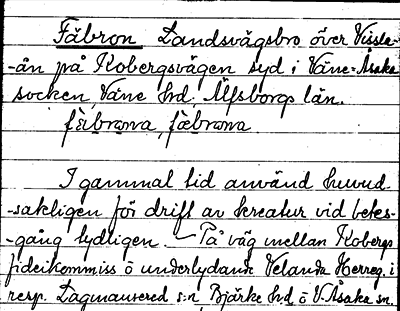 Fäbron Landsvägsbro över Vissla-
-ån på Kobergsvägen syd i Väne=Åsaka
socken, Väne hd, Älfsborgs län.
fäbroma, fæbroma
I gammal tid använd huvud-
-sakligen för drift av kreatur vid betes-
-gång tydligen. — På väg mellan Kobergs
fideikommiss o underlydande Velanda Herreg. i
resp. Lagmansered s:n, Bjärke hd o V. Åsaka sn.